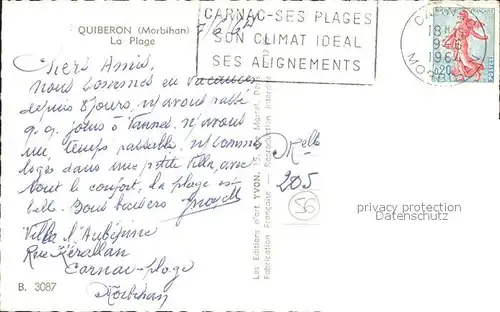 QUIBERON (Morbihan)
La Plage
CARNAC-SES PLAGES
SON CLIMAT IDEAL
SES ALIGNEMENTS
1964
0,20
Chers Amis,
nous sommes en vacances
depuis 8 jours, n/avons
q.q. jours à Vannes, n/avons
eu temps passable, n/sommes
logés dans une petite Villa, avec
tout le confort, la plage est
belle. Bons baisers
Villa l'Aubépine
Rue Kérallan
Carnac-plage
Morbihan
B. 3087
Les Editions d'art YVON, 15, Martel, Paris
Fabrication Française — Reproduction interdite
205
56
privacy protection
Datenschutz